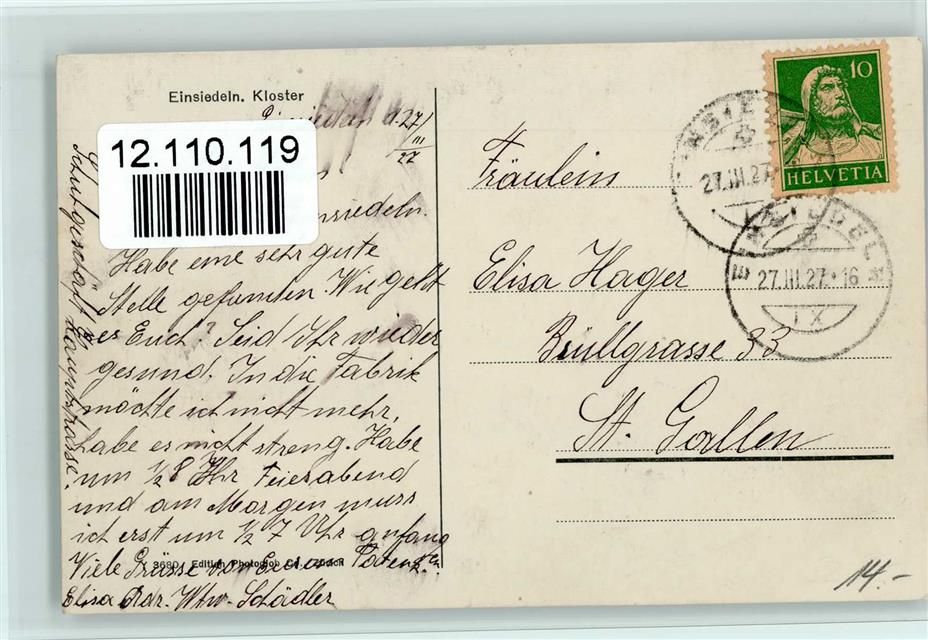 Einsiedeln. Kloster
27/III 27
12.110.119
Habe eine sehr gute
Stelle gefunden Wie geht
es Euch? Seid Ihr wieder
gesund. In die Fabrik
möchte ich nicht mehr,
habe es nicht streng. Habe
um ½8 Uhr Feierabend
und am Morgen muss
ich erst um ½ 7 Uhr anfang
Viele Grüsse von Eurer
Elisa Adr. Wtw. Schädler
Hauptstrasse.
3680 Edition Photoglob Co., Zürich
Fräulein
Elisa Hager
Brüllgrasse 33
St. Gallen
10
HELVETIA
27.III.27
EINSIEDELN
27.III.27.16
IX
14.-